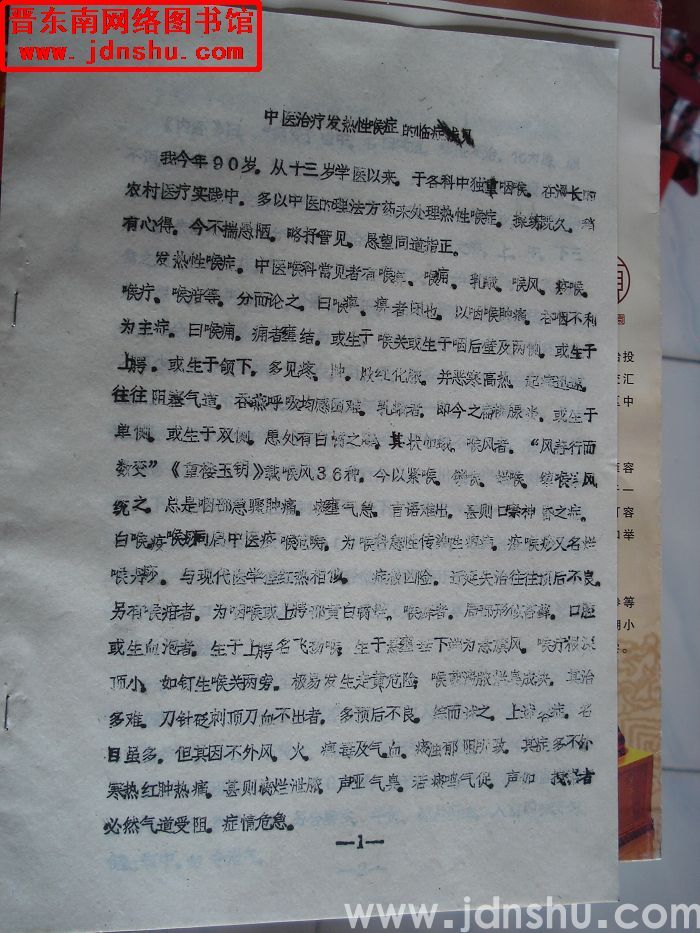 晋东南网络图书馆
www.jdnshu.com
中医治疗发热性喉症的临症浅见
我今年90岁。从十三岁学医以来。于各科中独重咽喉。在漫长的
农村医疗实践中。多以中医的理法方药来处理热性喉症。操练既久。稍
有心得。今不揣愚陋。略抒管见。恳望同道指正。
发热性喉症。中医喉科常见者有喉痹、喉痈、乳蛾、喉风、疫喉、
喉疔、喉疳等。分而论之。曰喉痹。痹者闭也。以咽喉肿痛。吞咽不利
为主症。曰喉痈。痈者壅结。或生于喉关或生于咽后壁及两侧。或生于
上腭。或生于颌下。多见疼、肿、焮红化脓。并恶寒高热。起病迅速。
往往阻塞气道。吞咽呼吸均感困难。乳蛾者。即今之扁桃腺炎。或生于
单侧。或生于双侧。患处有白膜之 其状如蛾。喉风者。“风善行而
数变”《重楼玉钥》载喉风36种。今以紧喉、锁喉、缠喉、 喉等风
统之。总是咽部急骤肿痛。痰壅气急。言语难出。甚则口噤神昏之症。
白喉疫喉痧同属中医疫喉范畴。为喉科急性传染性疾病。疫喉痧又名烂
喉丹痧。与现代医学猩红热相似。症液凶险。迁延失治往往预后不良。
另有喉疳者。为咽喉或上腭部黄白腐烂。喉癣者。局部形似苔藓。口腔
或生血泡者。生于上腭名飞扬喉；生于悬壅垂下端为悬旗风。喉疗根深
顶小。如钉生喉关两旁。极易发生走黄危险；喉 溃脓烂臭成块。其治
多难。刀针砭刺顶刀血不出者。多预后不良。综而述之。上述 症。名
目虽多。但其因不外风、火、 毒及气血。痰浊郁阻所致。其症多不外
寒热红肿热痛。甚则腐烂泄脓。声哑气臭。若痰鸣气促。声如 者
必然气道受阻。症情危急。
—1—
www.jdnshu.com